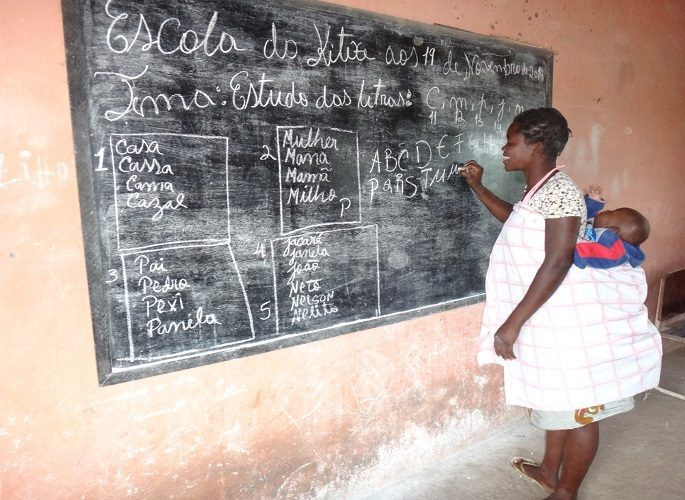 Escola do Kitixi aos 19 de Novembro de
Tema: Estudo das letras: C, m, p, j, n
11 12 13 14
1 Casa
Cassa
Cama
Cazal
2 Mulher
Mama
Mamã
Milho P
A B C D E F G H
P Q R S T U
3 Pai
Pedro
Pexi
Panéla
4 Jacaré
Janela
João
5 Neto
Nelson
Nelito